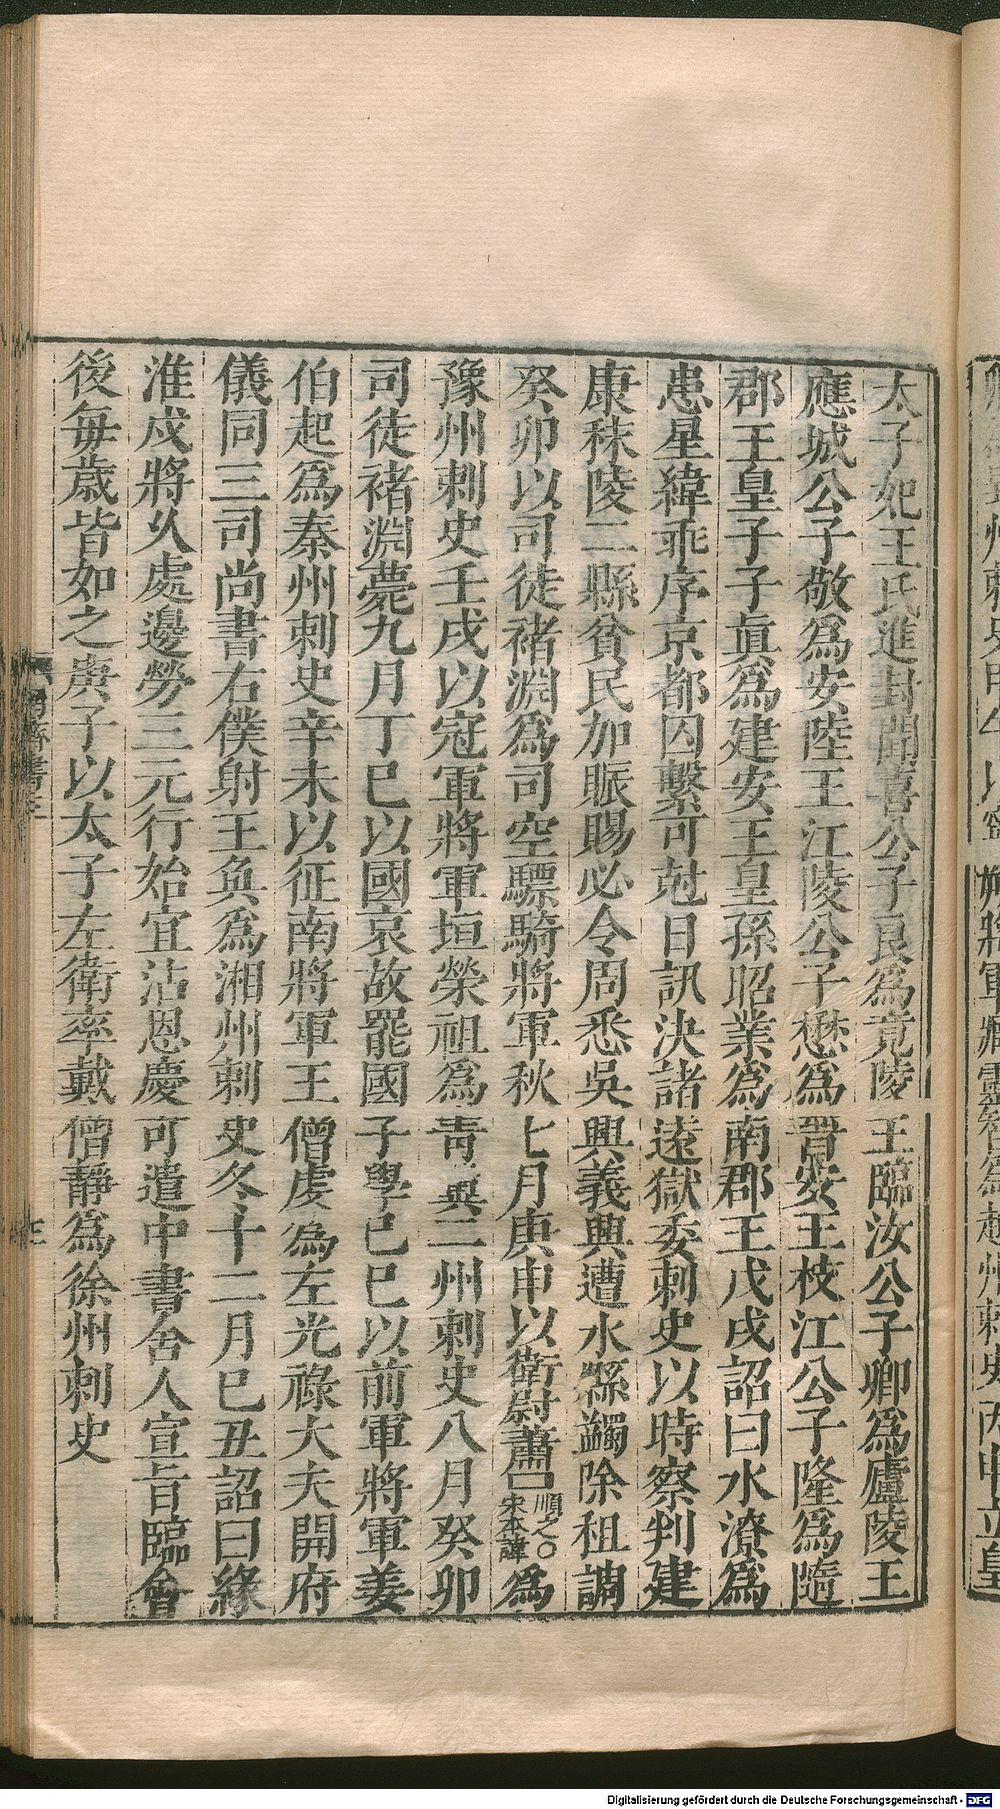 太子妃王氏進封聞喜公子良爲竟陵王臨汝公子卿爲廬陵王
應城公子敬爲安陸王江陵公子懋爲晉安王枝江公子隆爲隨
郡王皇子子眞爲建安王皇孫昭業爲南郡王戊戌詔曰水潦爲
患星緯乖序京都囚繫可尅日訊決諸遠獄委刺史以時察判建
康秣陵二縣貧民加賑賜必令周悉吳興義興遭水縣蠲除租調
癸卯以司徒褚淵爲司空驃騎將軍秋七月庚申以衛尉蕭㠯順之○宋本諱爲
豫州刺史壬戌以冠軍將軍垣榮祖爲青冀二州刺史八月癸卯
司徒褚淵薨九月丁巳以國哀故罷國子學己巳以前軍將軍姜
伯起爲秦州刺史辛未以征南將軍王僧虔爲左光祿大夫開府
儀同三司尚書右僕射王奐爲湘州刺史冬十二月己丑詔曰緣
淮戍將久處邊勞三元行始宜沾恩慶可遣中書舍人宣旨臨會
後每歲皆如之庚子以太子左衛率戴僧靜爲徐州刺史
南齊書三
三
Digitalisierung gefördert durch die Deutsche Forschungsgemeinschaft - DFG